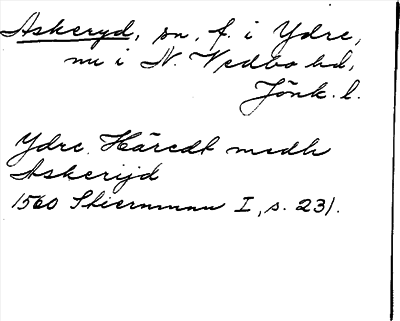 Askeryd, sn, f. i Ydre,
nu i N. Vedbo hd,
Jönk. l.
Ydre Häredt medh
Askerijd
1560 Stiernman I, s. 231.